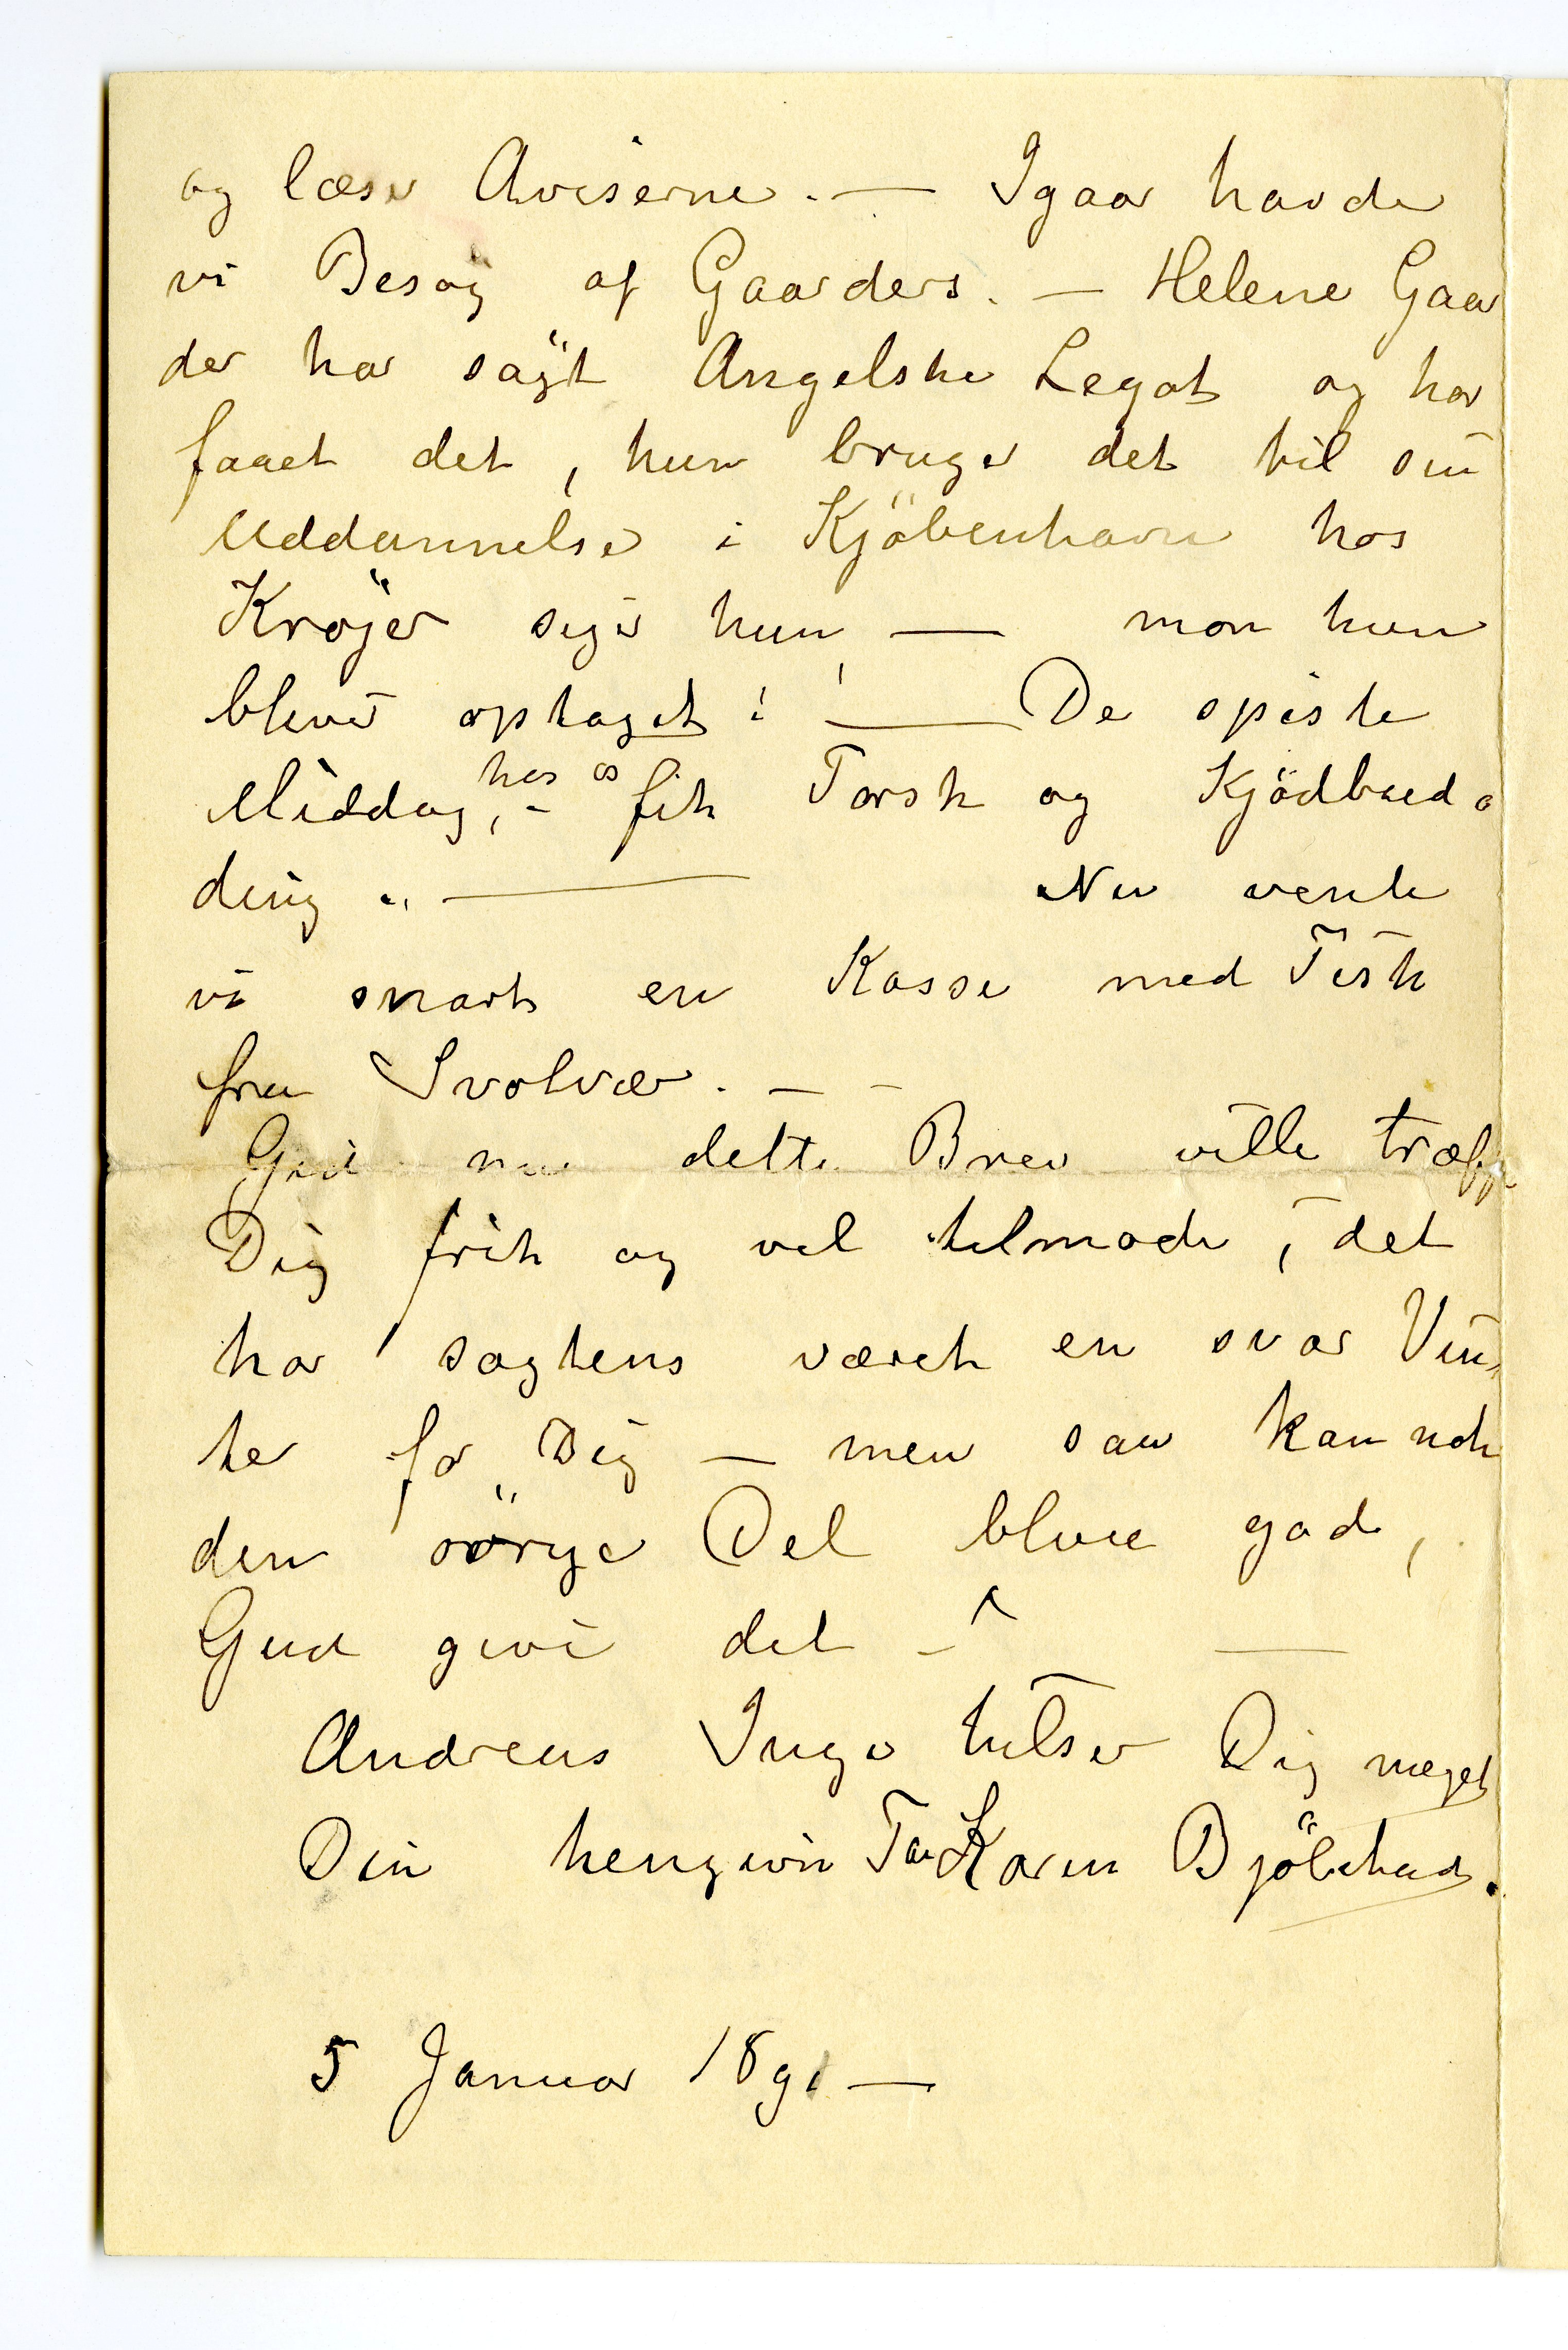 og læser Aviserne. — Igaar havde
vi Besøg af Gaarders. — Helene Gaar
der har søgt Angelske Legat og har
faaet det, hun bruger det til sin
Uddannelse i Kjöbenhavn hos
Kröjer siger hun, — mon hun
bliver optaget! — De spiste
Middag, hos os - fik Torsk og Kjödbud
ding. — Nu vente
vi snart en Kasse med Fisk
fra Svolvær. — -
Gid nu dette Brev ville træffe
Dig frisk og vel tilmode, det
har sagtens været en svær Vin
ter for Dig — men saa kan nok
den övrige Del blive god,
Gud give det - —
Andreas Inga hilser Dig meget
Din hengivne Ta Karen Bjölstad.
5 Januar 1891 —